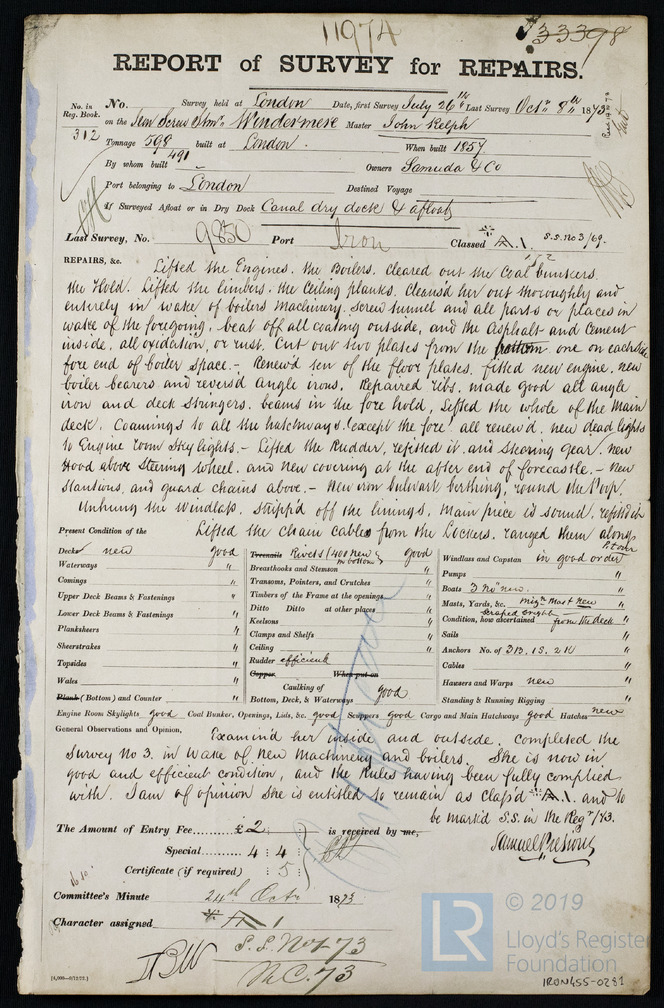 11974
33398
REPORT of SURVEY for REPAIRS.
No. in Reg. Book. 312
No. Survey held at London Date, first Survey July 26th Last Survey Octr 8th 1873
on the Iron Screw Stmr Windermere Master John Relph
Tonnage 598 built at London. When built 1857
491
By whom built Owners Samuda & Co
Port belonging to London Destined Voyage
If Surveyed Afloat or in Dry Dock Canal dry dock & afloat
Last Survey, No. 9850 Port Iron Classed A.1. S.S. No 3/69.
REPAIRS, &c. Lifted the Engines. the Boilers. cleared out the Coal bunkers.
the Hold. Lifted the limbers. the Ceiling planks. Cleans'd her out thoroughly and
entirely in wake of boilers Machinery. Screw tunnel and all parts or places in
wake of the foregoing, beat off all coating outside, and the Asphalt and Cement
inside. all oxidation, or rust. Cut out two plates from the bottom one on each side
fore end of boiler space. - Renew'd ten of the floor plates. fitted new engine. new
boiler bearers and revers'd angle irons. Repaired ribs. made good all angle
iron and deck stringers. beams in the fore hold, Lifted the whole of the Main
deck. Coamings to all the hatchways (except the fore) all renew'd. new dead lights
to Engine room Sky lights. - Lifted the Rudder, refitted it and Steering gear. New
Hood above Steering wheel. and New covering at the after end of forecastle. - New
Stantions, and guard chains above. - New iron bulwark birthing, round the Poop.
Unhung the Windlass. Stripp'd off the linings. Main piece is sound. refitted it
Lifted the chain cables from the Lockers. ranged them along
Present Condition of the
Decks new good
Waterways "
Comings "
Upper Deck Beams & Fastenings "
Lower Deck Beams & Fastenings "
Planksheers "
Sheerstrakes "
Topsides "
Wales "
Plank (Bottom) and Counter "
Treenails Rivets (400 new in bottom) good
Breasthooks and Stemson "
Transoms, Pointers, and Crutches "
Timbers of the Frame at the openings "
Ditto Ditto at other places "
Keelsons "
Clamps and Shelfs "
Ceiling "
Rudder efficient
Copper When put on
Caulking of
Bottom, Deck, & Waterways good
Windlass and Capstan in good order
Pumps "
Boats 3 No new. "
Masts, Yards, &c. Mizn Mast new "
scraped bright
Condition, how ascertained from the deck "
Sails "
Anchors No. of 3B. 1S. 2K "
Cables "
Hawsers and Warps new "
Standing & Running Rigging "
Engine Room Skylights good Coal Bunker, Openings, Lids, &c. good Scuppers good Cargo and Main Hatchways good Hatches new
General Observations and Opinion,
Examin'd her inside and outside. Completed the
Survey No 3. in Wake of New Machinery and boilers. She is now in
good and efficient condition, and the Rules having been fully complied
with. I am of opinion She is entitled to remain as class'd A.1. and to
be mark'd S.S. in the Regr /73.
The Amount of Entry Fee £2 is received by me,
Special 4 : 4 :
Certificate (if required) : 5 :
Samuel Presious
Committee's Minute 24th Octr 1873
Character assigned A 1
S.S. No 3-73
M.C. 73
[6,000—9/12/72.]
© 2019
LR
Lloyd's Register
Foundation
IRON455-0281